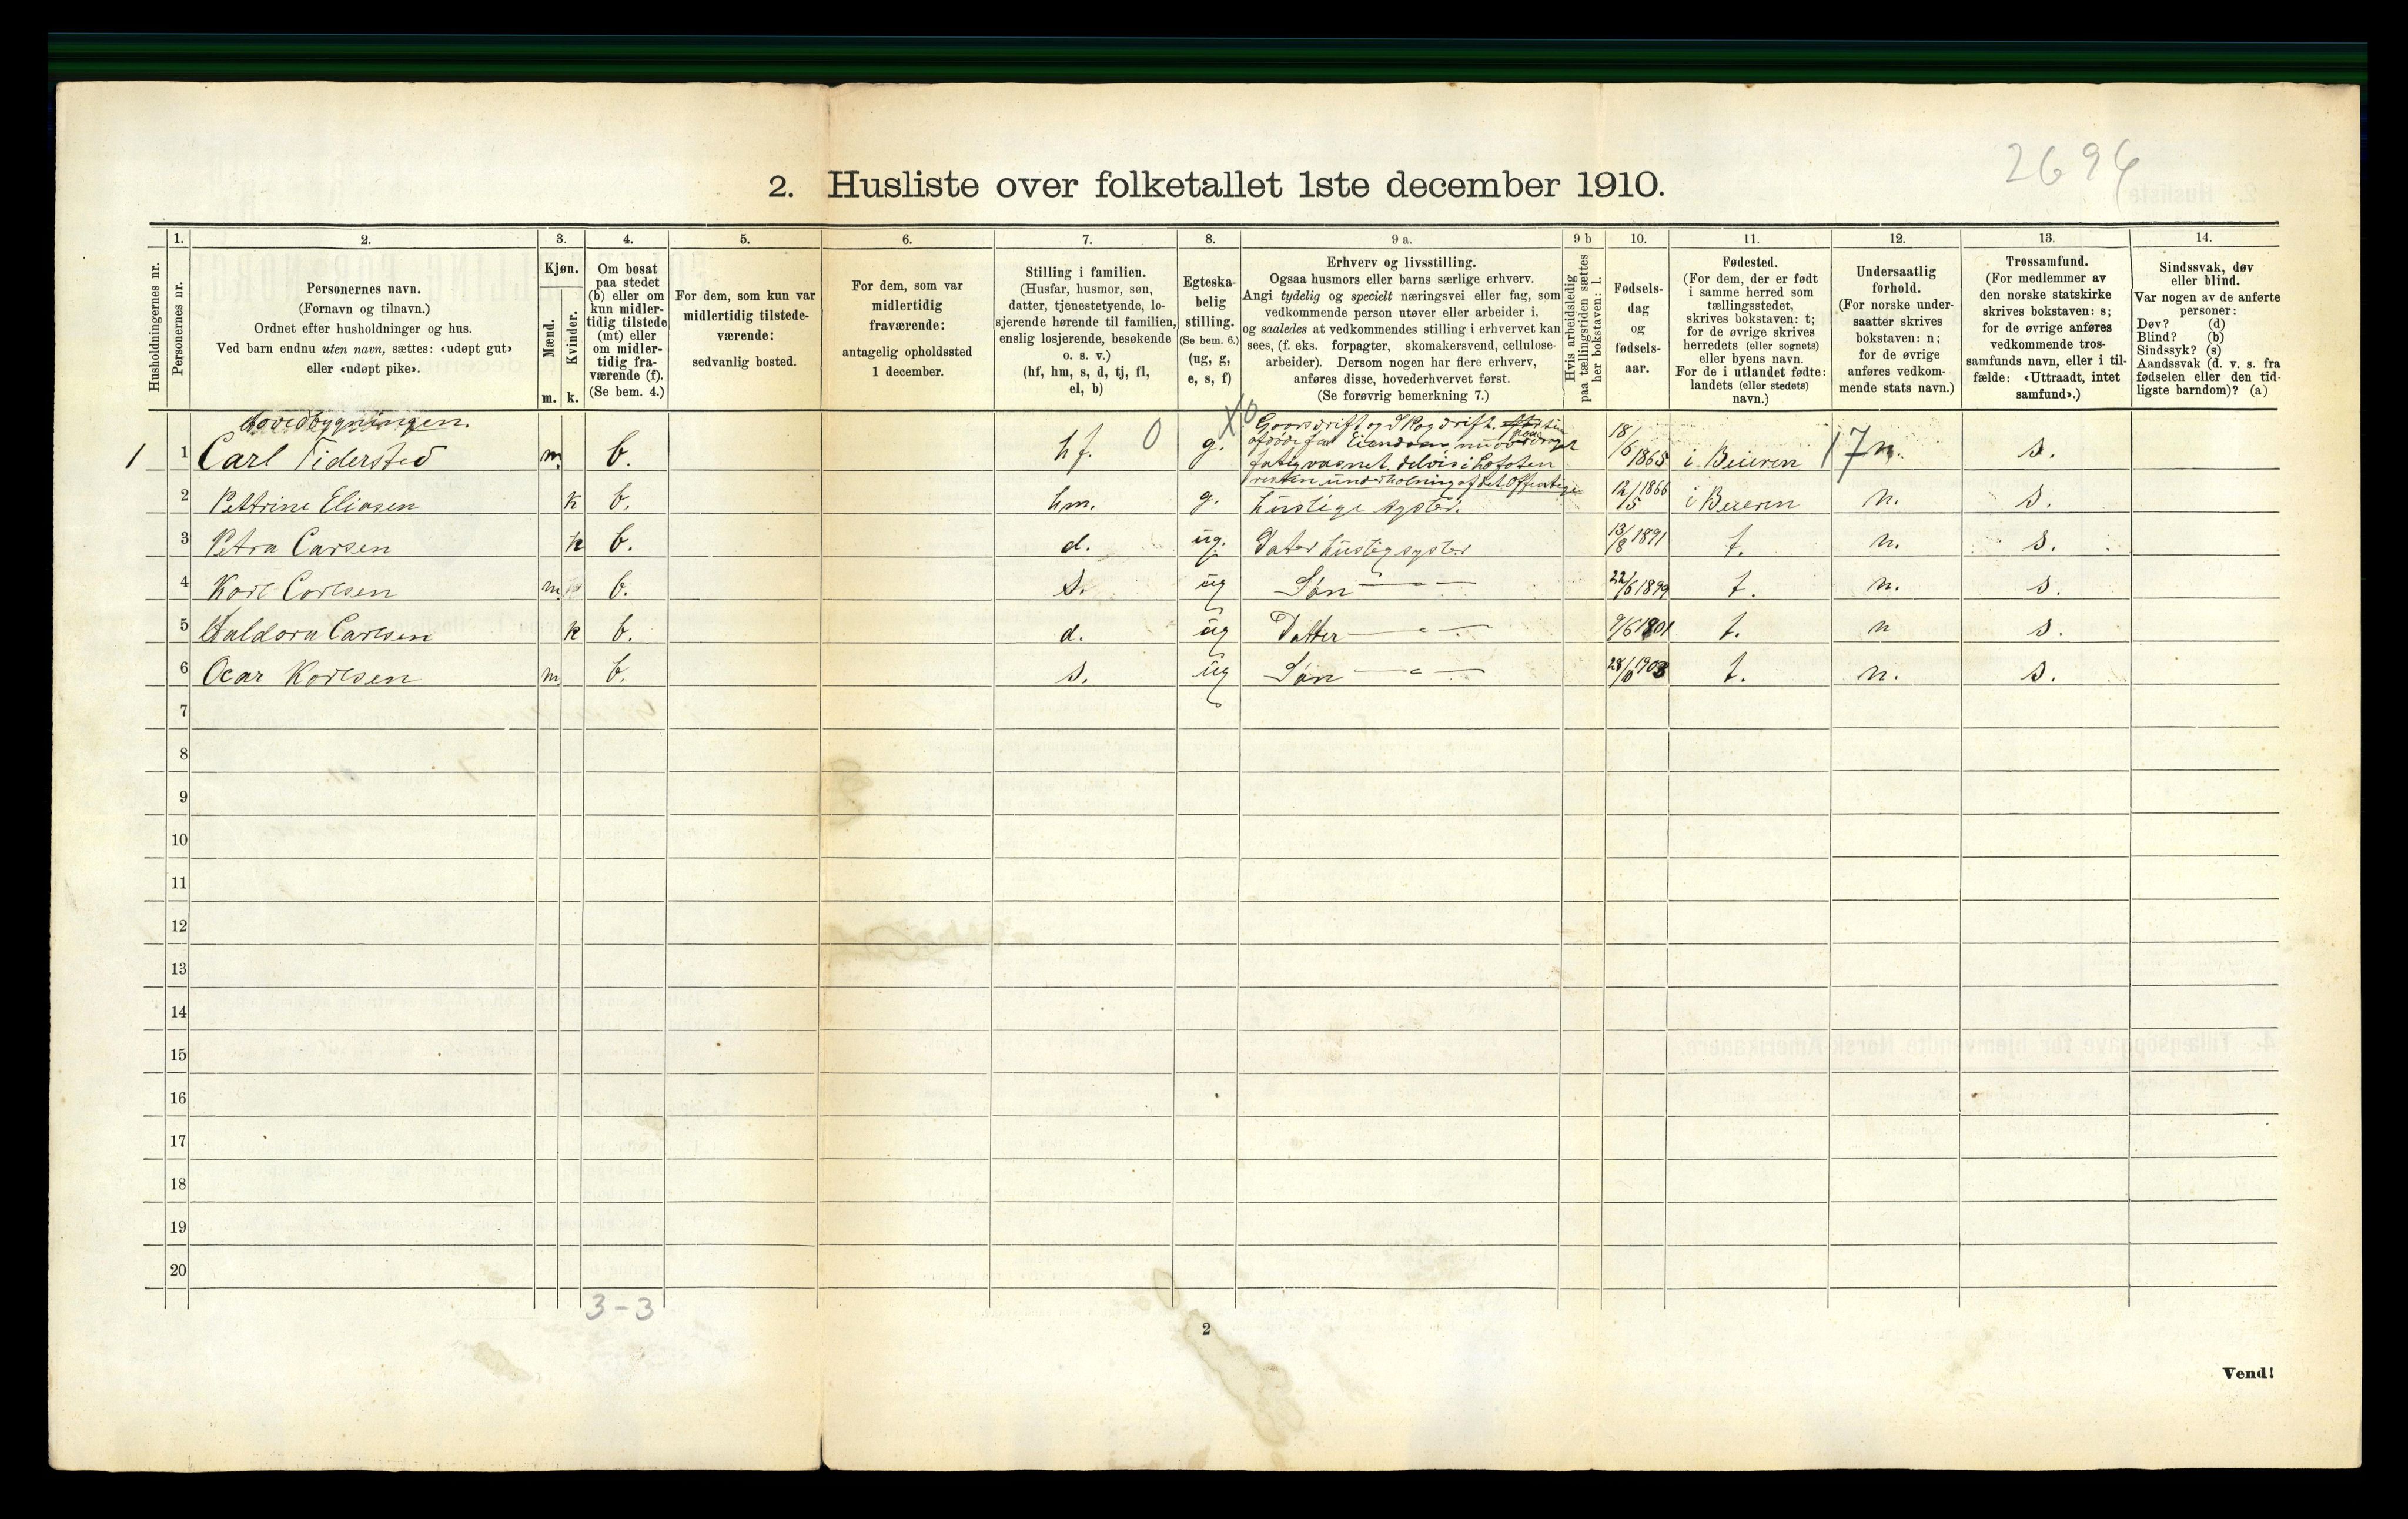 2694
2. Husliste over folketallet 1ste december 1910.
Husholdningernes nr.
1.
Personernes nr.
2.
Personernes navn.
(Fornavn og tilnavn.)
Ordnet efter husholdninger og hus.
Ved barn endnu uten navn, sættes: «udøpt gut»
eller «udøpt pike».
3.
Kjøn.
Mænd.
Kvinder.
m. k.
4.
Om bosat
paa stedet
(b) eller om
kun midler-
tidig tilstede
(mt) eller
om midler-
tidig fra-
værende (f).
(Se bem. 4.)
5.
For dem, som kun var
midlertidig tilstede-
værende:
sedvanlig bosted.
6.
For dem, som var
midlertidig
fraværende:
antagelig opholdssted
1 december.
7.
Stilling i familien.
(Husfar, husmor, søn,
datter, tjenestetyende, lo-
sjerende hørende til familien,
enslig losjerende, besøkende
o. s. v.)
(hf, hm, s, d, tj, fl,
el, b)
8.
Egteska-
belig
stilling.
(Se bem. 6.)
(ug, g,
e, s, f)
9 a.
Erhverv og livsstilling.
Ogsaa husmors eller barns særlige erhverv.
Angi tydelig og specielt næringsvei eller fag, som
vedkommende person utøver eller arbeider i,
og saaledes at vedkommendes stilling i erhvervet kan
sees, (f. eks. forpagter, skomakersvend, cellulose-
arbeider). Dersom nogen har flere erhverv,
anføres disse, hovederhvervet først.
(Se forøvrig bemerkning 7.)
9 b
Hvis arbeidsledig
paa tællingstiden sættes
her bokstaven: l.
10.
Fødsels-
dag
og
fødsels-
aar.
11.
Fødested.
(For dem, der er født
i samme herred som
tællingsstedet,
skrives bokstaven: t;
for de øvrige skrives
herredets (eller sognets)
eller byens navn.
For de i utlandet fødte:
landets (eller stedets)
navn.)
12.
Undersaatlig
forhold.
(For norske under-
saatter skrives
bokstaven: n;
for de øvrige
anføres vedkom-
mende stats navn.)
13.
Trossamfund.
(For medlemmer av
den norske statskirke
skrives bokstaven: s;
for de øvrige anføres
vedkommende tros-
samfunds navn, eller i til-
fælde: «Uttraadt, intet
samfund».)
14.
Sindssvak, døv
eller blind.
Var nogen av de anførte
personer:
Døv? (d)
Blind? (b)
Sindssyk? (s)
Aandssvak (d. v. s. fra
fødselen eller den tid-
ligste barndom)? (a)
Hovedbygningen.
1 1 Carl Tidersted m. b. hf. 0 g. X0 Gaarsdrift og Skogdrift
Eiendom
fatigvæsnet, delvis i Lofoten
resten underholning af det Offentlige
18/6 1865 i Beieren 17 n. s.
2 Pettrine Eliasen k b. hm. g. huslige sysler. 12/5 1866 i Beieren n. s.
3 Petra Carsen k b. d. ug. Dater huslig sysler 13/8 1891 t. n. s.
4 Karl Carlsen m b. s. ug Søn — " — 22/6 1899 t. n. s.
5 Haldora Carlsen k b. d. ug Datter — " — 9/6 1901 t. n s.
6 Ocar Karlsen m b. s. ug Søn — " — 28/10 1903 t. n. s.
7
8
9
10
11
12
13
14
15
16
17
18
19
20
3-3
2
Vend!